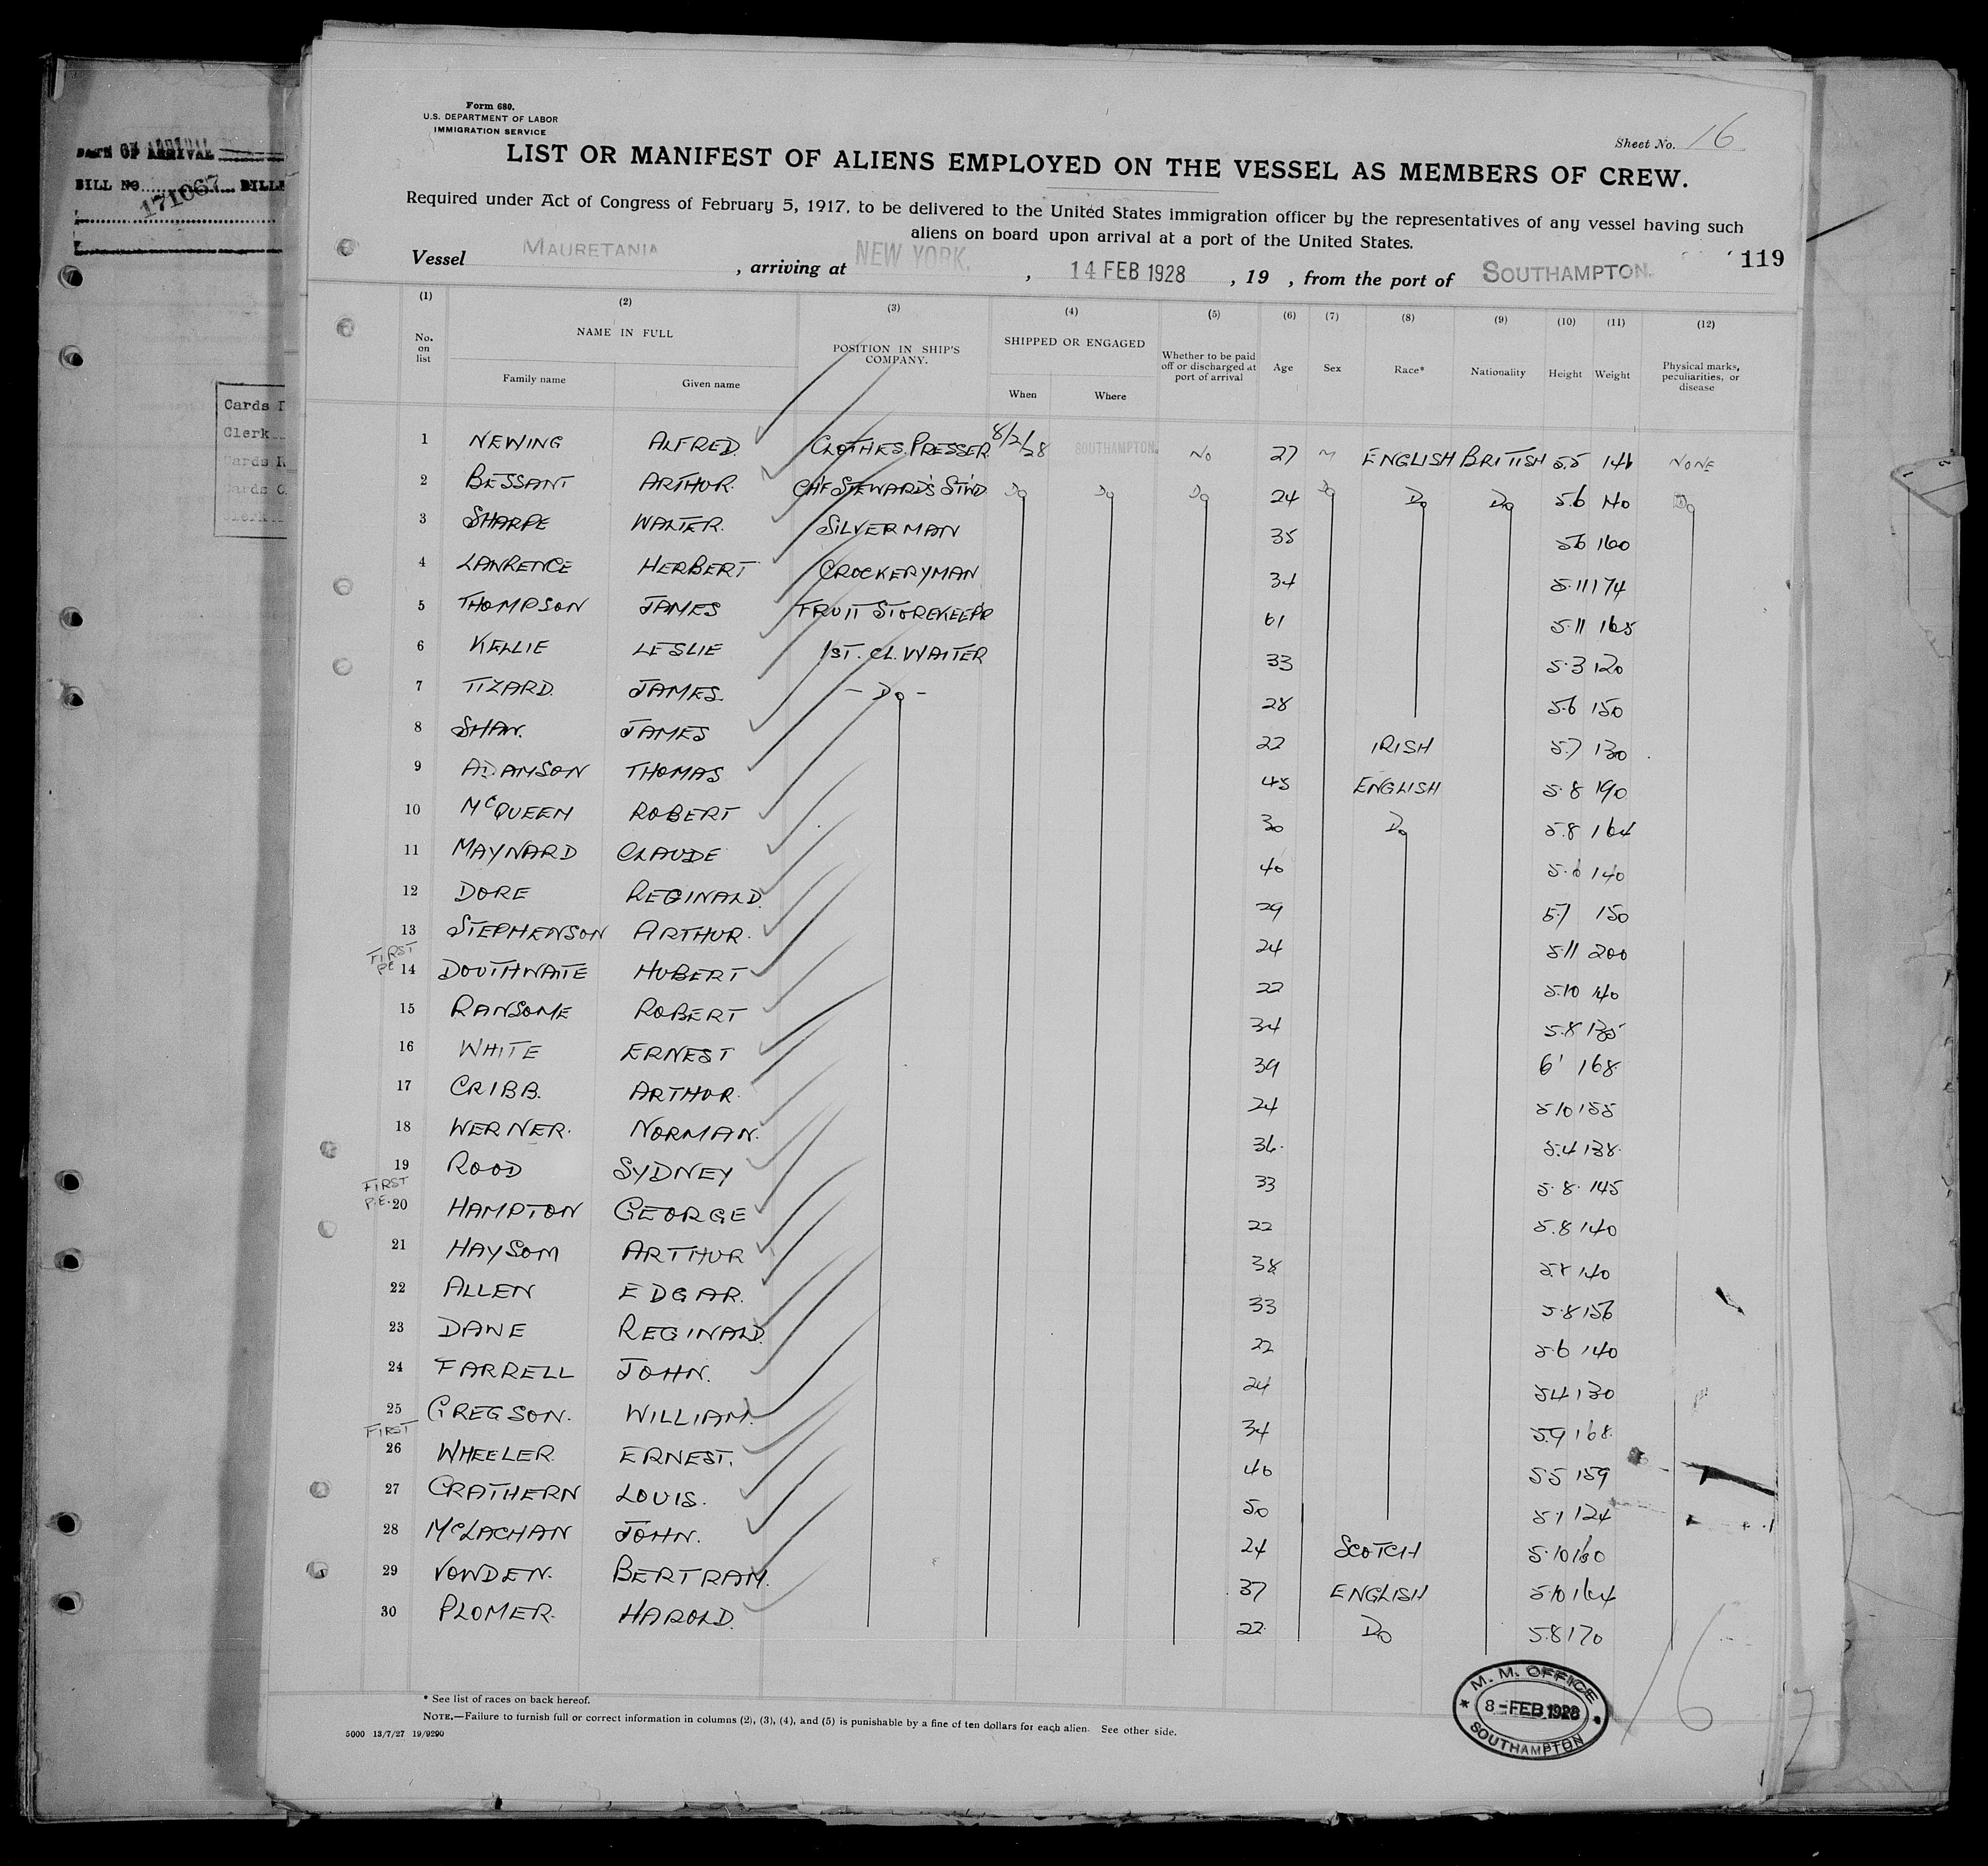 DATE OF ARRIVAL
BILL NO. 171067
Cards
Clerk
Cards
Cards
Clerk
Form 680.
U.S. DEPARTMENT OF LABOR
IMMIGRATION SERVICE
Sheet No. 16
LIST OR MANIFEST OF ALIENS EMPLOYED ON THE VESSEL AS MEMBERS OF CREW.
Required under Act of Congress of February 5, 1917, to be delivered to the United States immigration officer by the representatives of any vessel having such
aliens on board upon arrival at a port of the United States.
119
Vessel MAURETANIA , arriving at NEW YORK. , 14 FEB 1928 , 19 , from the port of SOUTHAMPTON.
(1) (2) (3) (4) (5) (6) (7) (8) (9) (10) (11) (12)
No. on list NAME IN FULL Family name Given name POSITION IN SHIP'S COMPANY. SHIPPED OR ENGAGED When Where Whether to be paid off or discharged at port of arrival Age Sex Race* Nationality Height Weight Physical marks, peculiarities, or disease
1 NEWING ALFRED. CLOTHES PRESSER 8/2/28 SOUTHAMPTON. NO 27 M ENGLISH BRITISH 5.5 146 NONE
2 BESSANT ARTHUR. CH'F STEWARD'S ST'WD Do Do Do 24 Do Do Do 5.6 140 Do
3 SHARPE WALTER. SILVERMAN 35 5.6 160
4 LAWRENCE HERBERT CROCKERYMAN 34 5.11 174
5 THOMPSON JAMES FRUIT STOREKEEP'R 61 5.11 165
6 KELLIE LESLIE 1ST. CL. WAITER 33 5.3 120
7 TIZARD. JAMES. - Do - 28 5.6 150
8 SHAW. JAMES 22 IRISH 5.7 130
9 ADAMSON THOMAS 45 ENGLISH 5.8 190
10 McQUEEN ROBERT 30 Do 5.8 164
11 MAYNARD CLAUDE 40 5.6 140
12 DORE REGINALD. 29 5.7 150
13 STEPHENSON ARTHUR. 24 5.11 200
FIRST
14 DOUTHWAITE HUBERT 22 5.10 140
15 RANSOME ROBERT 34 5.8 135
16 WHITE ERNEST 39 6' 168
17 CRIBB. ARTHUR. 24 5.10 155
18 WERNER. NORMAN. 36. 5.4 138.
19 ROOD SYDNEY 33 5.8. 145
FIRST
P.E. 20 HAMPTON GEORGE 22 5.8 140
21 HAYSOM ARTHUR 38 5.8 140
22 ALLEN EDGAR. 33 5.8 156
23 DAWE REGINALD. 22 5.6 140
24 FARRELL JOHN. 24 5.4 130
25 GREGSON. WILLIAM. 34 5.9 168.
FIRST
26 WHEELER. ERNEST. 40 5.5 159
27 GRATHERN LOUIS. 50 5.1 124
28 McLACHAN JOHN. 24 SCOTCH 5.10 160
29 VOWDEN. BERTRAM. 37 ENGLISH 5.10 164
30 PLOMER. HAROLD. 22. Do 5.8 170
* See list of races on back hereof.
NOTE.—Failure to furnish full or correct information in columns (2), (3), (4), and (5) is punishable by a fine of ten dollars for each alien. See other side.
5000 13/7/27 19/9290
M. M. OFFICE
8 - FEB 1928
SOUTHAMPTON
16